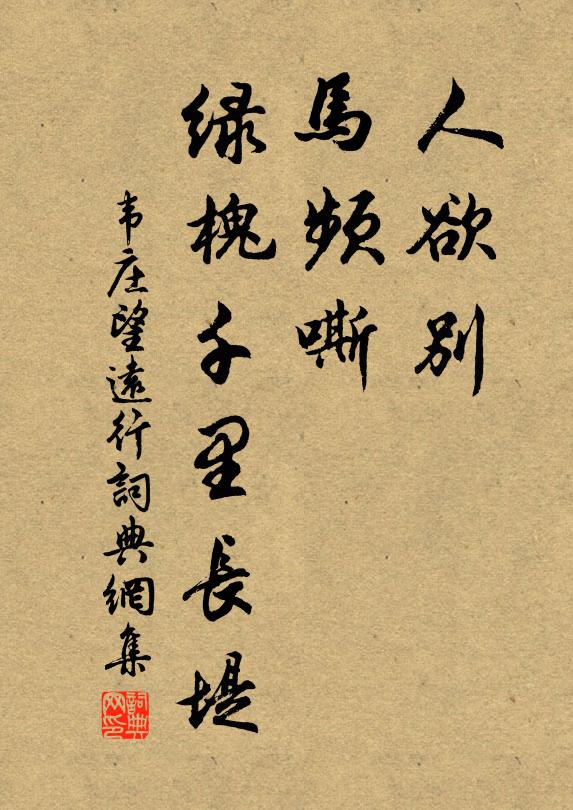 人欲別
馬頻嘶
緑槐千里長堤
韦庄望遠行詞典網集
詞典网印